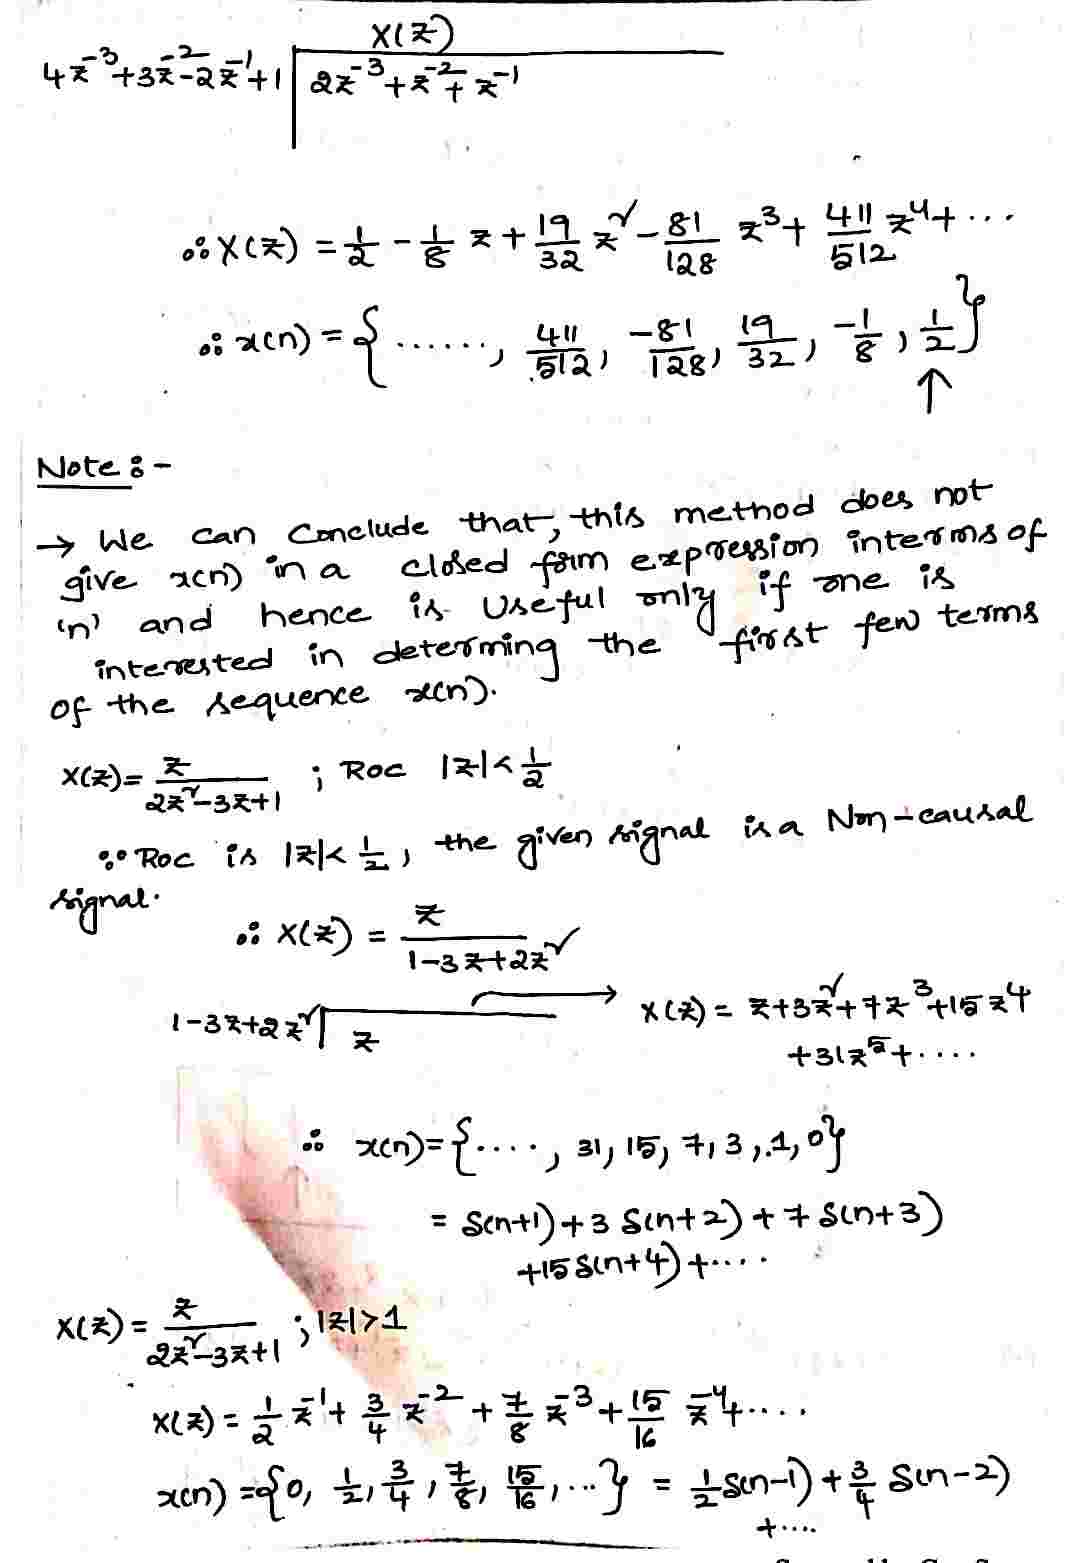 X(z)
4z⁻³+3z⁻²-2z⁻¹+1 | 2z⁻³+z⁻²+z⁻¹
∴ X(z) = 1/2 - 1/8 z + 19/32 z² - 81/128 z³ + 411/512 z⁴ + ...
∴ x(n) = {......, 411/512, -81/128, 19/32, -1/8, 1/2}
↑
Note :-
→ We can Conclude that, this method does not
give x(n) in a closed form expression interms of
'n' and hence is Useful only if one is
interested in determing the first few terms
of the sequence x(n).
X(z) = z/(2z²-3z+1) ; ROC |z|< 1/2
∵ ROC is |z|< 1/2, the given signal is a Non-causal
signal.
∴ X(z) = z/(1-3z+2z²)
1-3z+2z² | z → X(z) = z+3z²+7z³+15z⁴
+31z⁵+....
∴ x(n)={...., 31, 15, 7, 3, 1, 0}
= δ(n+1)+3 δ(n+2)+7 δ(n+3)
+15 δ(n+4)+....
X(z) = z/(2z²-3z+1) ; |z|>1
X(z) = 1/2 z⁻¹ + 3/4 z⁻² + 7/8 z⁻³ + 15/16 z⁻⁴+....
x(n) = {0, 1/2, 3/4, 7/8, 15/16, ...} = 1/2 δ(n-1) + 3/4 δ(n-2)
+....